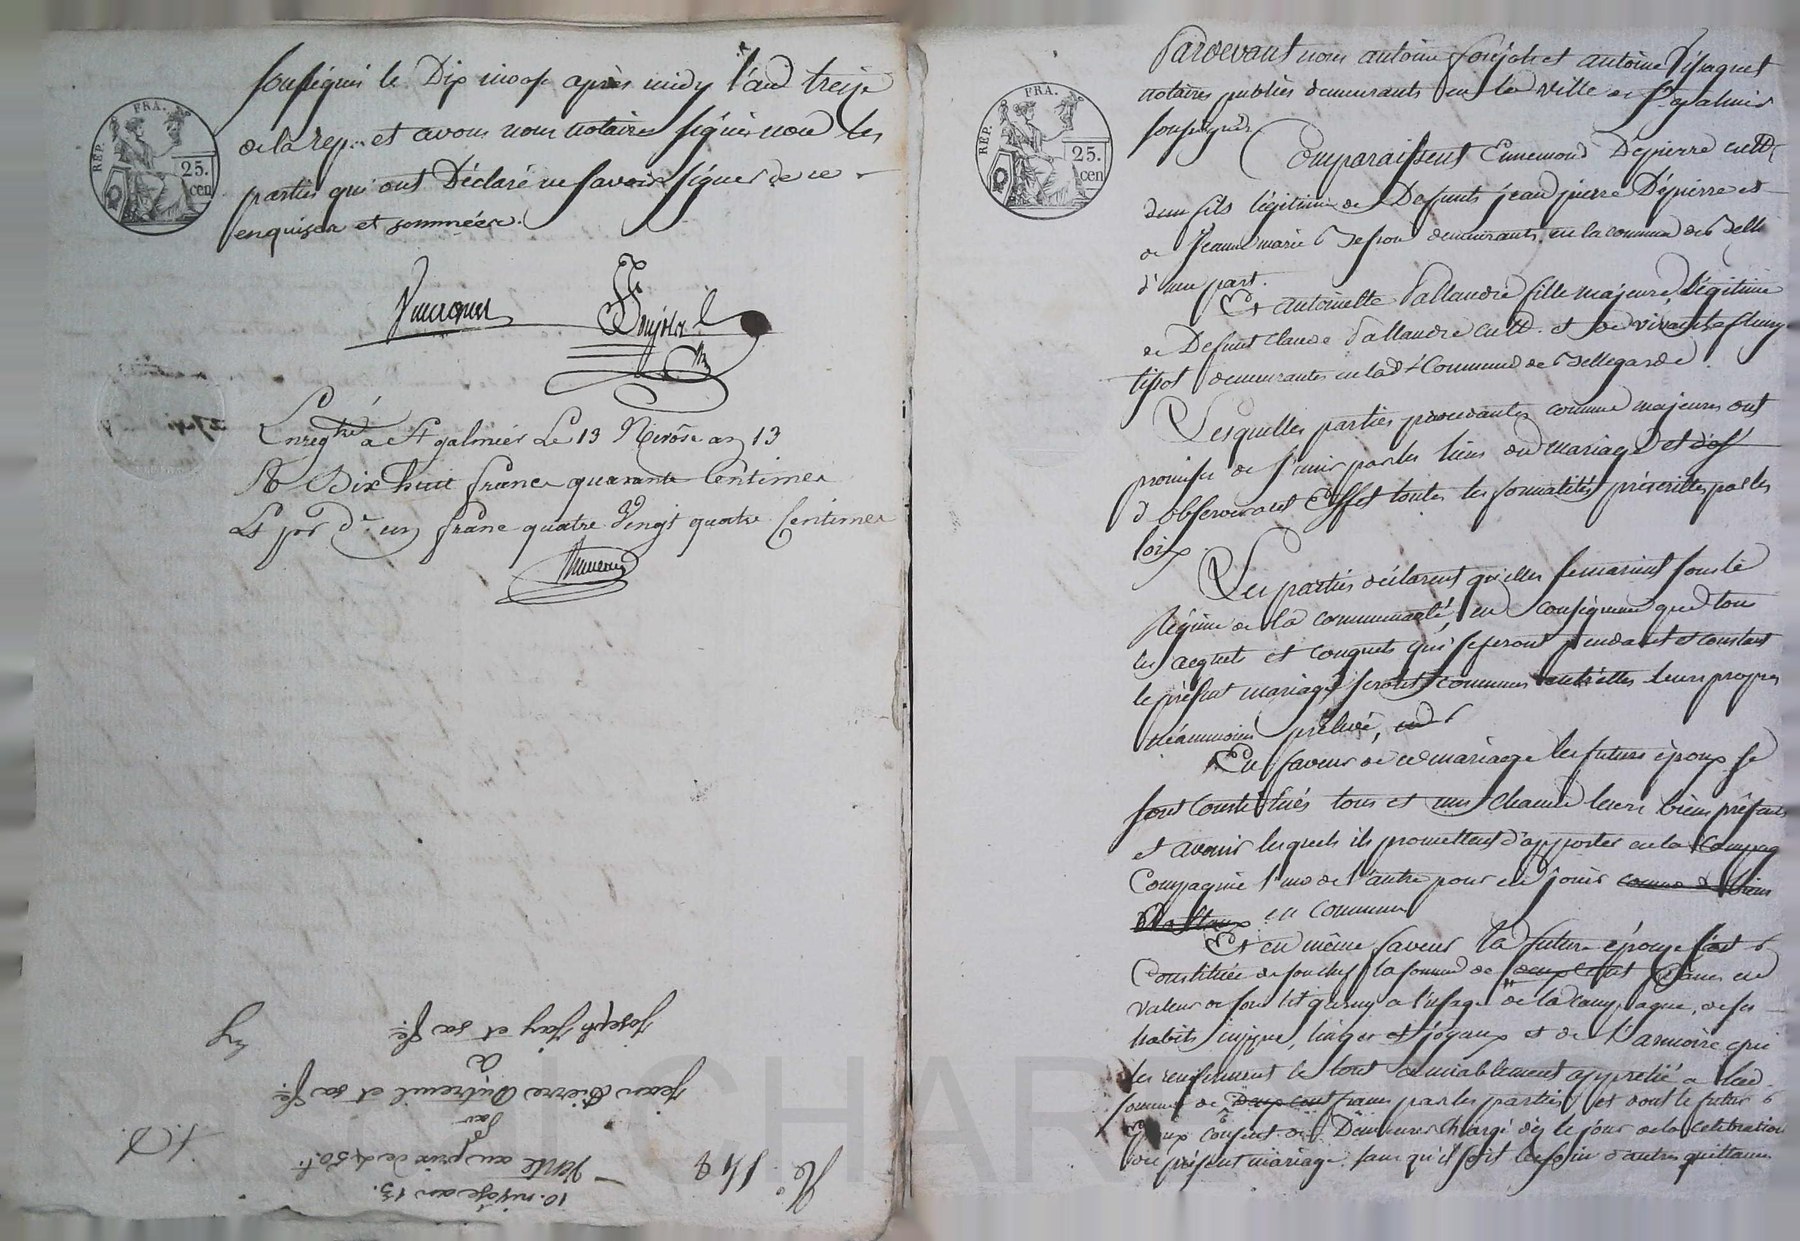 soussignés le Dix nivose après midy l'an treize
de la rep.. et avons nous notaires signés non les
parties qui ont Déclaré ne savoir signer de ce
enquises et sommées.
REP. FRA.
25.
cen
Enregtré à St galmier Le 13 Nivôse an 13
R Dix huit francs quarante Centimes
Et por d.e un franc quatre Vingt quatre Centimes
No. 148
10. nivose an 13.
Vente au prix de 450.f.
par
Jean Pierre Dutreuil et sa fe.
à
Joseph Jay et sa fe.
Pardevant nous antoine Ponjolet antoine
notaires publics demeurants en la ville de St galmier
soussignés
Comparaissent Ennemond Dépierre cultt
d'une fils légitime de Defunts jean pierre Dépierre et
de Jeanne marie demeurants en la commune de Belle
d'une part.
REP. FRA.
25.
cen
Et antoinette Pallandre fille majeure, légitime
de Defunt Claude Pallandre cultt. et de vivante
demeurantes en lad.t Commune de Bellegarde
Lesquelles parties procedantes comme majeures ont
promises de s'unir par les liens du mariage et d'ef
d'observer a cet Effet toutes les formalités préscrittes par les
loix.
Les parties déclarent qu'elles se marient sous le
Régime de la communauté, en conséquence que tous
les acquets et conquets qui se feront pendant et constant
le présent mariage seront communs entr'elles leurs propres
néanmoins prélevé,
En faveur de ce mariage les futurs époux se
sont Constitués tous et uns chacuns leurs biens présents
et avenir lesquels ils promettent d'apporter en la Compag
Compagnie l'un de l'autre pour en jouir comme de biens
en commun
Et en même faveur la future épouse s'est
Constituée de son chef la somme de deux cents francs en
valeur de son lit garny a l'usage de la campagne, de ses
habits, linges et joyaux et de l'armoire qui
les renferment le tout amiablement apprétié a lad.
somme de Deux cent francs par les parties et dont le futur
époux consent de Demeurer chargé dès le jour de la célébration
du présent mariage sans qu'il soit besoin d'autres quittances